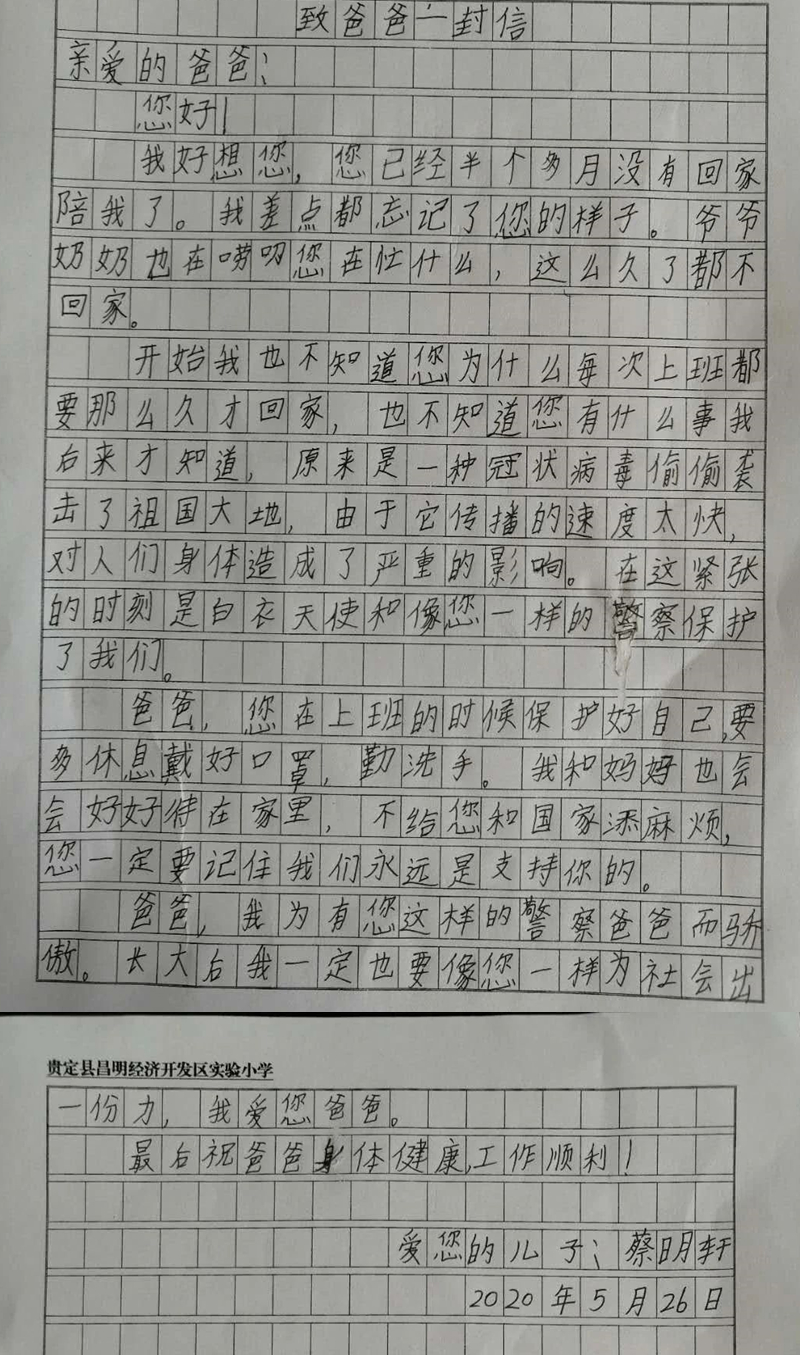 致爸爸一封信
亲爱的爸爸：
您好！
我好想您，您已经半个多月没有回家
陪我了。我差点都忘记了您的样子。爷爷
奶奶也在唠叨您在忙什么，这么久了都不
回家。
开始我也不知道您为什么每次上班都
要那么久才回家，也不知道您有什么事我
后来才知道，原来是一种冠状病毒偷偷袭
击了祖国大地，由于它传播的速度太快，
对人们身体造成了严重的影响。在这紧张
的时刻是白衣天使和像您一样的警察保护
了我们。
爸爸，您在上班的时候保护好自己，要
多休息戴好口罩，勤洗手。我和妈妈也会
会好好待在家里，不给您和国家添麻烦，
您一定要记住我们永远是支持你的。
爸爸，我为有您这样的警察爸爸而骄
傲。长大后我一定也要像您一样为社会出
贵定县昌明经济开发区实验小学
一份力，我爱您爸爸。
最后祝爸爸身体健康，工作顺利！
爱您的儿子：蔡明轩
2020年5月26日